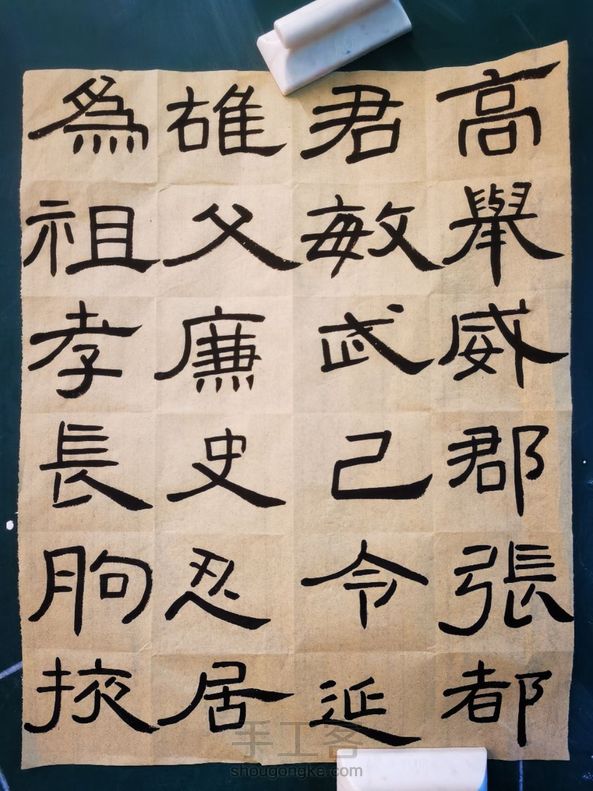 高舉威郡張都
君敏武己令延
雄父廉史忍居
為祖孝長朐掖
手工客
shougongke.com